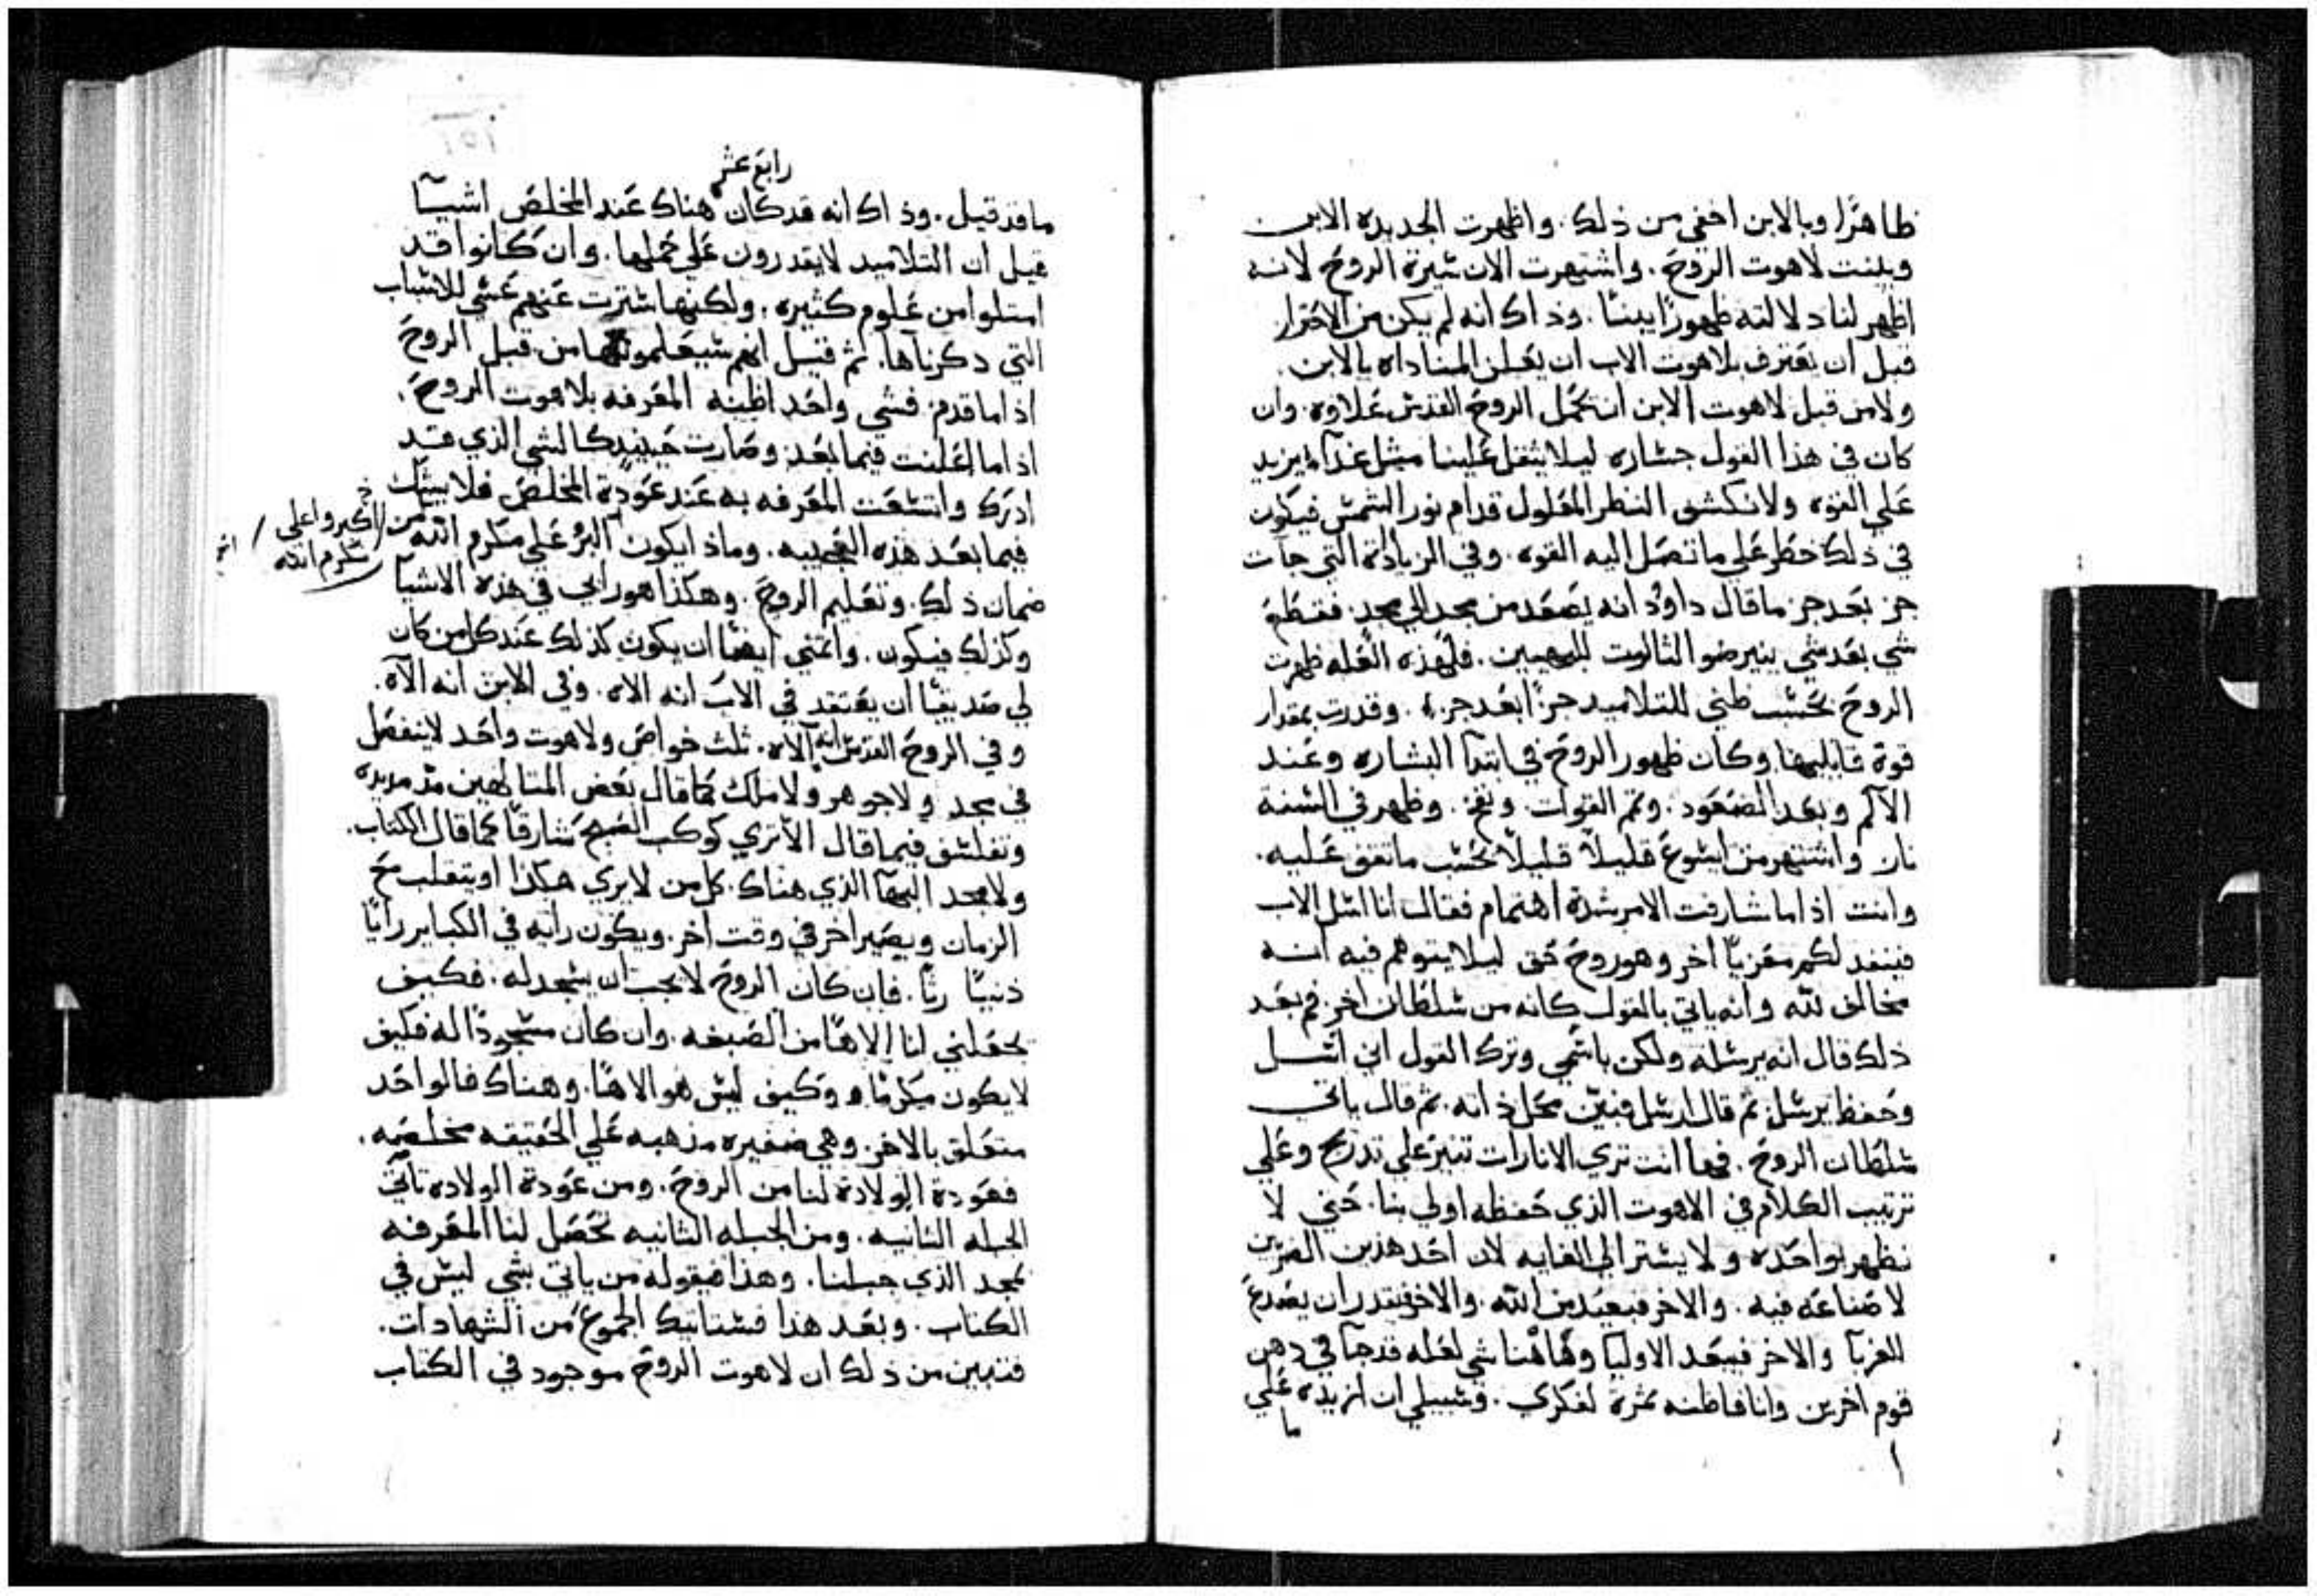 ظاهرًا وبالابن اخفي من ذلك. واظهرت الجديده الابن
وبينت لاهوت الروح. واشتهرت الان سيرة الروح لانه
اظهر لنا دلالته ظهورًا بينًا. وذاك انه لم يكن من الاحترار
قبل ان يعترف بلاهوت الاب ان يعلن المناداه بالابن.
ولا من قبل لاهوت الابن ان نحمل الروح القدس علاوه. وان
كان في هذا القول جساره ليلا يثقل علينا مثل غذآ يزيد
علي القوه ولا نكشف النظر المعلول قدام نور الشمس فيكون
في ذلك خطر علي ما تصل اليه القوه. وفي الزيادة التي جآت
جز بعد جز ما قال داوُد انه يصعد من مجد الي مجد. فسطع
شي بعد شي ينير ضو الثالوت للبهيين. فلهذه العله ظهرت
الروح بحسب ظني للتلاميد جزًا بعد جز. وقدرت بمقدار
قوة قابليها وكان ظهور الروح في ابتدآ البشاره وعند
الآلم وبعد الصعود. وتم القوات ونفخ. وظهر في السنة
نار واشتهر من ايسوع قليلاً قليلاً بحسب ما تفق عليه.
وانت اذا ما شارفت الامر بشدة اهتمام فقال انا اسل الاب
فينفد لكم معزيًا اخر وهو روح حق ليلا يتوهم فيه انه
مخالف لله وانه ياتي بالقول كانه من سلطان اخر. ثم بعد
ذلك قال انه يرسله ولكن باسمي وترك القول اني اسل
وحفظ يرسل ثم قال ارسل فبين محل ذاته. ثم قال ياتي
سلطان الروح. فها انت تري الانارات تنير علي تدريج وعلي
ترتيب الكلام في الاهوت الذي حفظه اولي بنا. حتي لا
نظهر بواحده ولا يستر الي الغايه لان احد هذين الفرين
لا صناعه فيه. والاخر فبعيد من الله. والاخر فيقدر ان يصدع
للغربآ والاخر فيبعد الاوليا وهاهنا شي لعله قد جآ في دهن
قوم اخرين وانا فاظنه ثمرة لفكري. وسبيلي ان ازيده علي
ما
رابع عشر
ما قد قيل. وذاك انه قد كان هناك عند المخلص اشيآ
قيل ان التلاميد لا يقدرون علي حملها. وان كانوا قد
امتلوا من علوم كثيره. ولكنها سترت عنهم عسي للاسباب
التي دكرناها. ثم قيل انهم سيعلمونها من قبل الروح
اذا ما قدم. فشي واحد اظنه المعرفه بلاهوت الروح.
اذا ما اعلنت فيما بعد وصارت حينيد كالشي الذي قد
ادرك واتسعت المعرفه به عند عودة المخلص فلا يشك
فيما بعد هذه العجيبه. وماذا يكون اكبر علي مكرم الله من
اكبر واعلي
مكرم الله
ضمان ذلك. وتعليم الروح. وهكذا هو رايي في هذه الاشيآ
وكذلك فيكون. واتمني ايضًا ان يكون كذلك عند كل من كان
لي صديقًا ان يعتقد في الاب انه الاه. وفي الابن انه الآه.
وفي الروح القدس انه الآه. ثلث خواص ولاهوت واحد لا ينفصل
في مجد ولا جوهر ولا ملك كما قال بعض المتالهين مذ مديده
وتفلسف فيما قال الا تري كوكب الصبح شارقًا كما قال الكتاب.
ولا مجد البهآ الذي هناك. كل من لا يري هكذا او يتقلب مع
الزمان ويصير اخر في وقت اخر. ويكون رايه في الكباير رايًا
دنيًا رثًا. فان كان الروح لا يجب ان يسجد له. فكيف
يجعلني لنا إلاهًا من الصبغه. وان كان مسجودًا له فكيف
لا يكون مكرمًا وكيف ليس هو الاهًا. وهناك فالواحد
متعلق بالاخر. وهي ضفيره مذهبه علي الحقيقه مخلصه.
فعودة الولادة لنا من الروح. ومن عودة الولاده تاتي
الجبله الثانيه. ومن الجبله الثانيه تحصل لنا المعرفه
بمجد الذي جبلنا. وهذا فيقوله من ياتي بشي ليس في
الكتاب. وبعد هذا فستاتيك الجموع من الشهادات.
فتبين من ذلك ان لاهوت الروح موجود في الكتاب